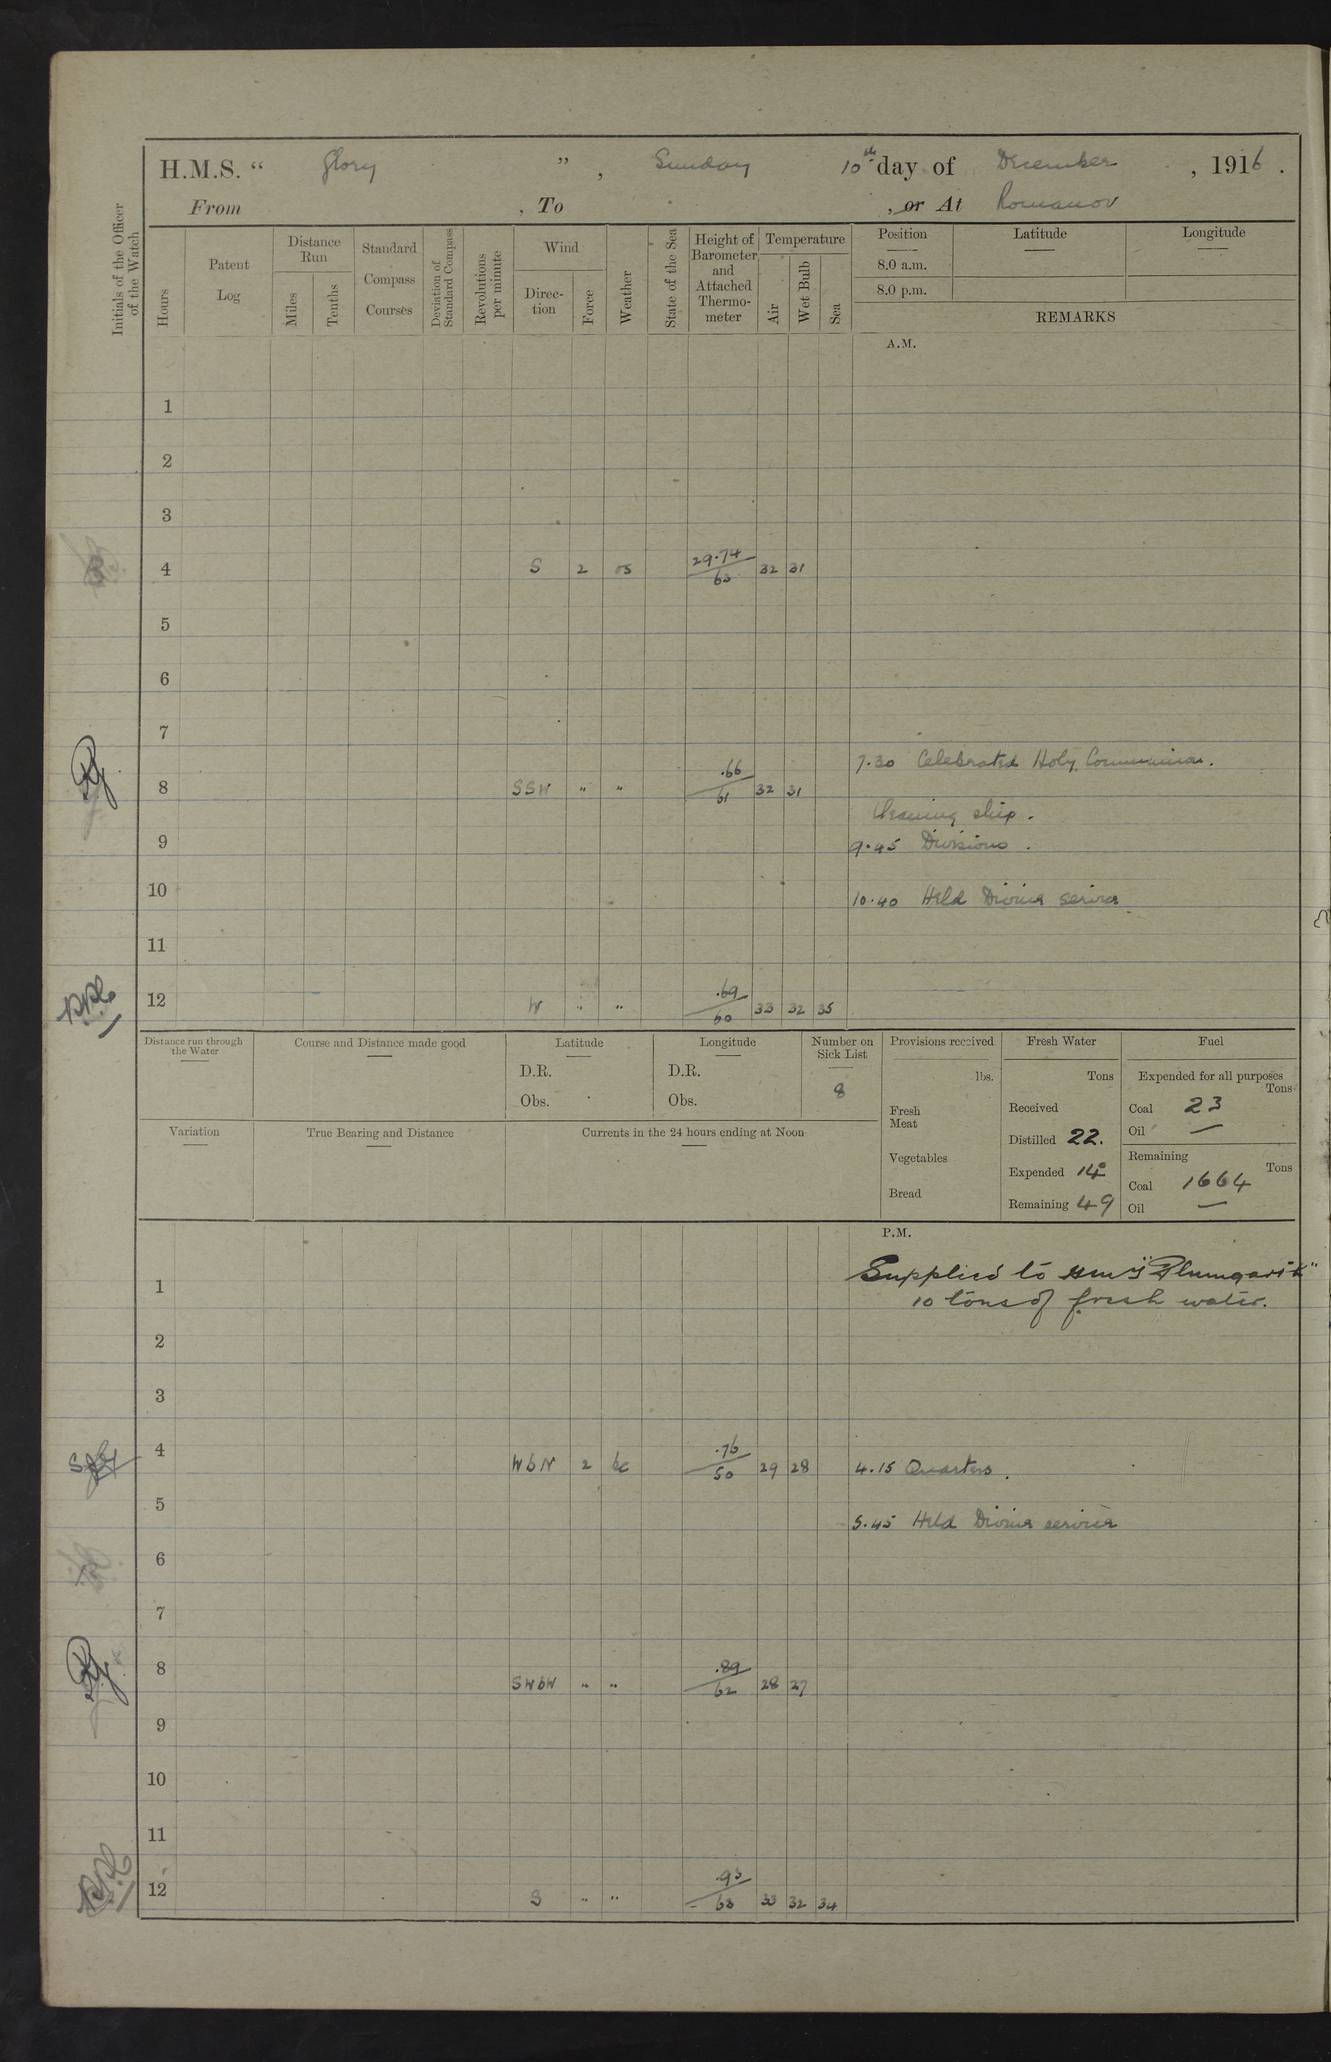 H.M.S. “ Glory ”, Sunday 10th day of December, 1916.
From , To , or At Romanov
Initials of the Officer of the Watch
Hours
Patent Log
Distance Run
Miles
Tenths
Standard Compass Courses
Deviation of Standard Compass
Revolutions per minute
Wind
Direc-tion
Force
Weather
State of the Sea
Height of Barometer and Attached Thermo-meter
Temperature
Air
Wet Bulb
Sea
Position
Latitude
Longitude
8.0 a.m.
8.0 p.m.
REMARKS
A.M.
1
2
3
4 S 2 os 29.74/63 32 31
5
6
7
7.30 Celebrated Holy Communion.
8 SSW " " .66/61 32 31
Cleaning ship.
9 9.45 Divisions.
10 10.40 Held Divine service
11
12 W " " .69/60 33 32 35
Distance run through the Water
Course and Distance made good
Latitude
D.R.
Obs.
Longitude
D.R.
Obs.
Number on Sick List
8
Provisions received
lbs.
Fresh Meat
Vegetables
Bread
Fresh Water
Tons
Received
Distilled 22.
Expended 14
Remaining 49
Fuel
Expended for all purposes
Tons
Coal 23
Oil —
Remaining
Tons
Coal 1664
Oil —
Variation
True Bearing and Distance
Currents in the 24 hours ending at Noon
P.M.
Supplied to HMS
1 10 tons of fresh water.
2
3
4 WbN 2 bc .76/50 29 28 4.15 Quarters.
5 5.45 Held Divine service
6
7
8 SWbW " " .89/62 28 27
9
10
11
12 S " " .93/63 33 32 34